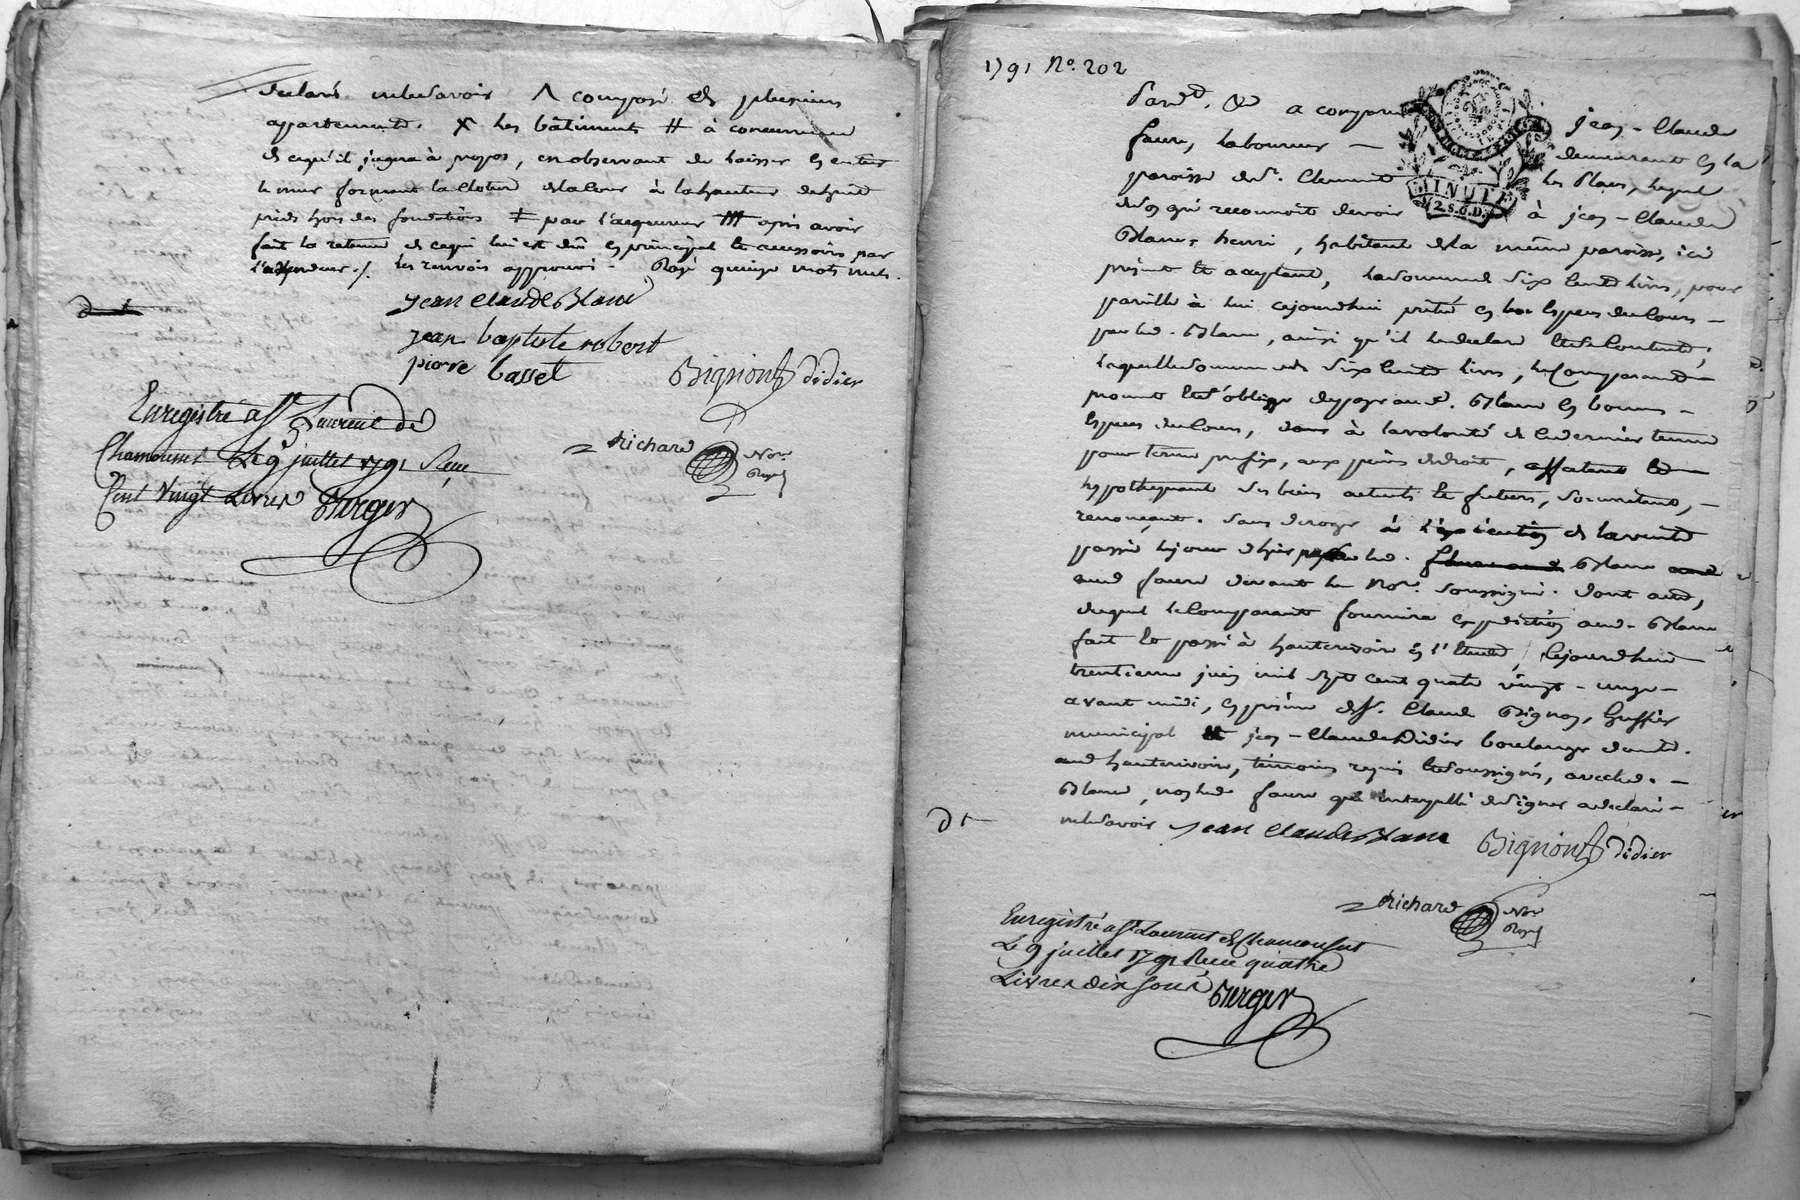 declaré ne le savoir Λ composé de plusieurs
appartements. X les bâtiments # à concurrence
de ce qu'il jugera à propos, en observant de laisser en entier
le mur formant la cloture de la cour à la hauteur de huit
pieds hors des fondations ‡ par l'acquereur après avoir
fait la retenue de ce qui lui est dû en principal et accessoires par
les renvois approuvé. Rayé quinze mots nuls.
jean claude Blanc
jean baptiste robert
pierre basset
Bigniont Didier
Richard Nore Royal
Enregistré a St. Laurent de
Chamousset Le 9 juillet 1791 Reçu
Cent Vingt Livres Berger
1791 No. 202
Pardt. &c a comparu jean-Claude
faure, laboureur — demeurant en la
paroisse de St. Clement les Places, lequel
de son gré reconnoit devoir à jean-Claude
Blanc, henri, habitant de la même paroisse, ici
présent et acceptant, la somme de six cents livres, pour
pareille à lui cejourdhui prêté en bon especes du cours —
par led. Blanc, ainsi qu'il le declare et s'en contente;
laquelle somme de six cents livres, le Comparant
promet et s'oblige de payer aud. Blanc en bonnes —
especes du cours, dans à la volonté de ce dernier
pour terme prefix, aux peines de droit, affectant et
hypothequant ses biens actuels et futurs, soumettant, —
renonçant. sans deroger à l'execution de la vente
passée le jour d'hier par led. Blanc
aud faure devant le Nore. soussigné. dont acte,
duquel le Comparant fournira expedition aud. Blanc
fait et passé à hauterivoire en l'Etude, cejourdhui
trentieme juin mil sept cent quatre vingt-onze
avant midi, en présence de Sr. Claude Bignon, Greffier
municipal et jean-Claude Didier boulanger
aud hauterivoire, témoins requis et soussignés, avec led. —
Blanc, non led faure qui interpellé de signer a declaré —
ne le savoir jean claude Blanc Bigniont Didier
Richard Nore Royal
MINUTE
2.S.6.D.
Enregistré a St. Laurent de Chamousset
Le 9 juillet 1791 Reçu quatre
Livres dix sous Berger